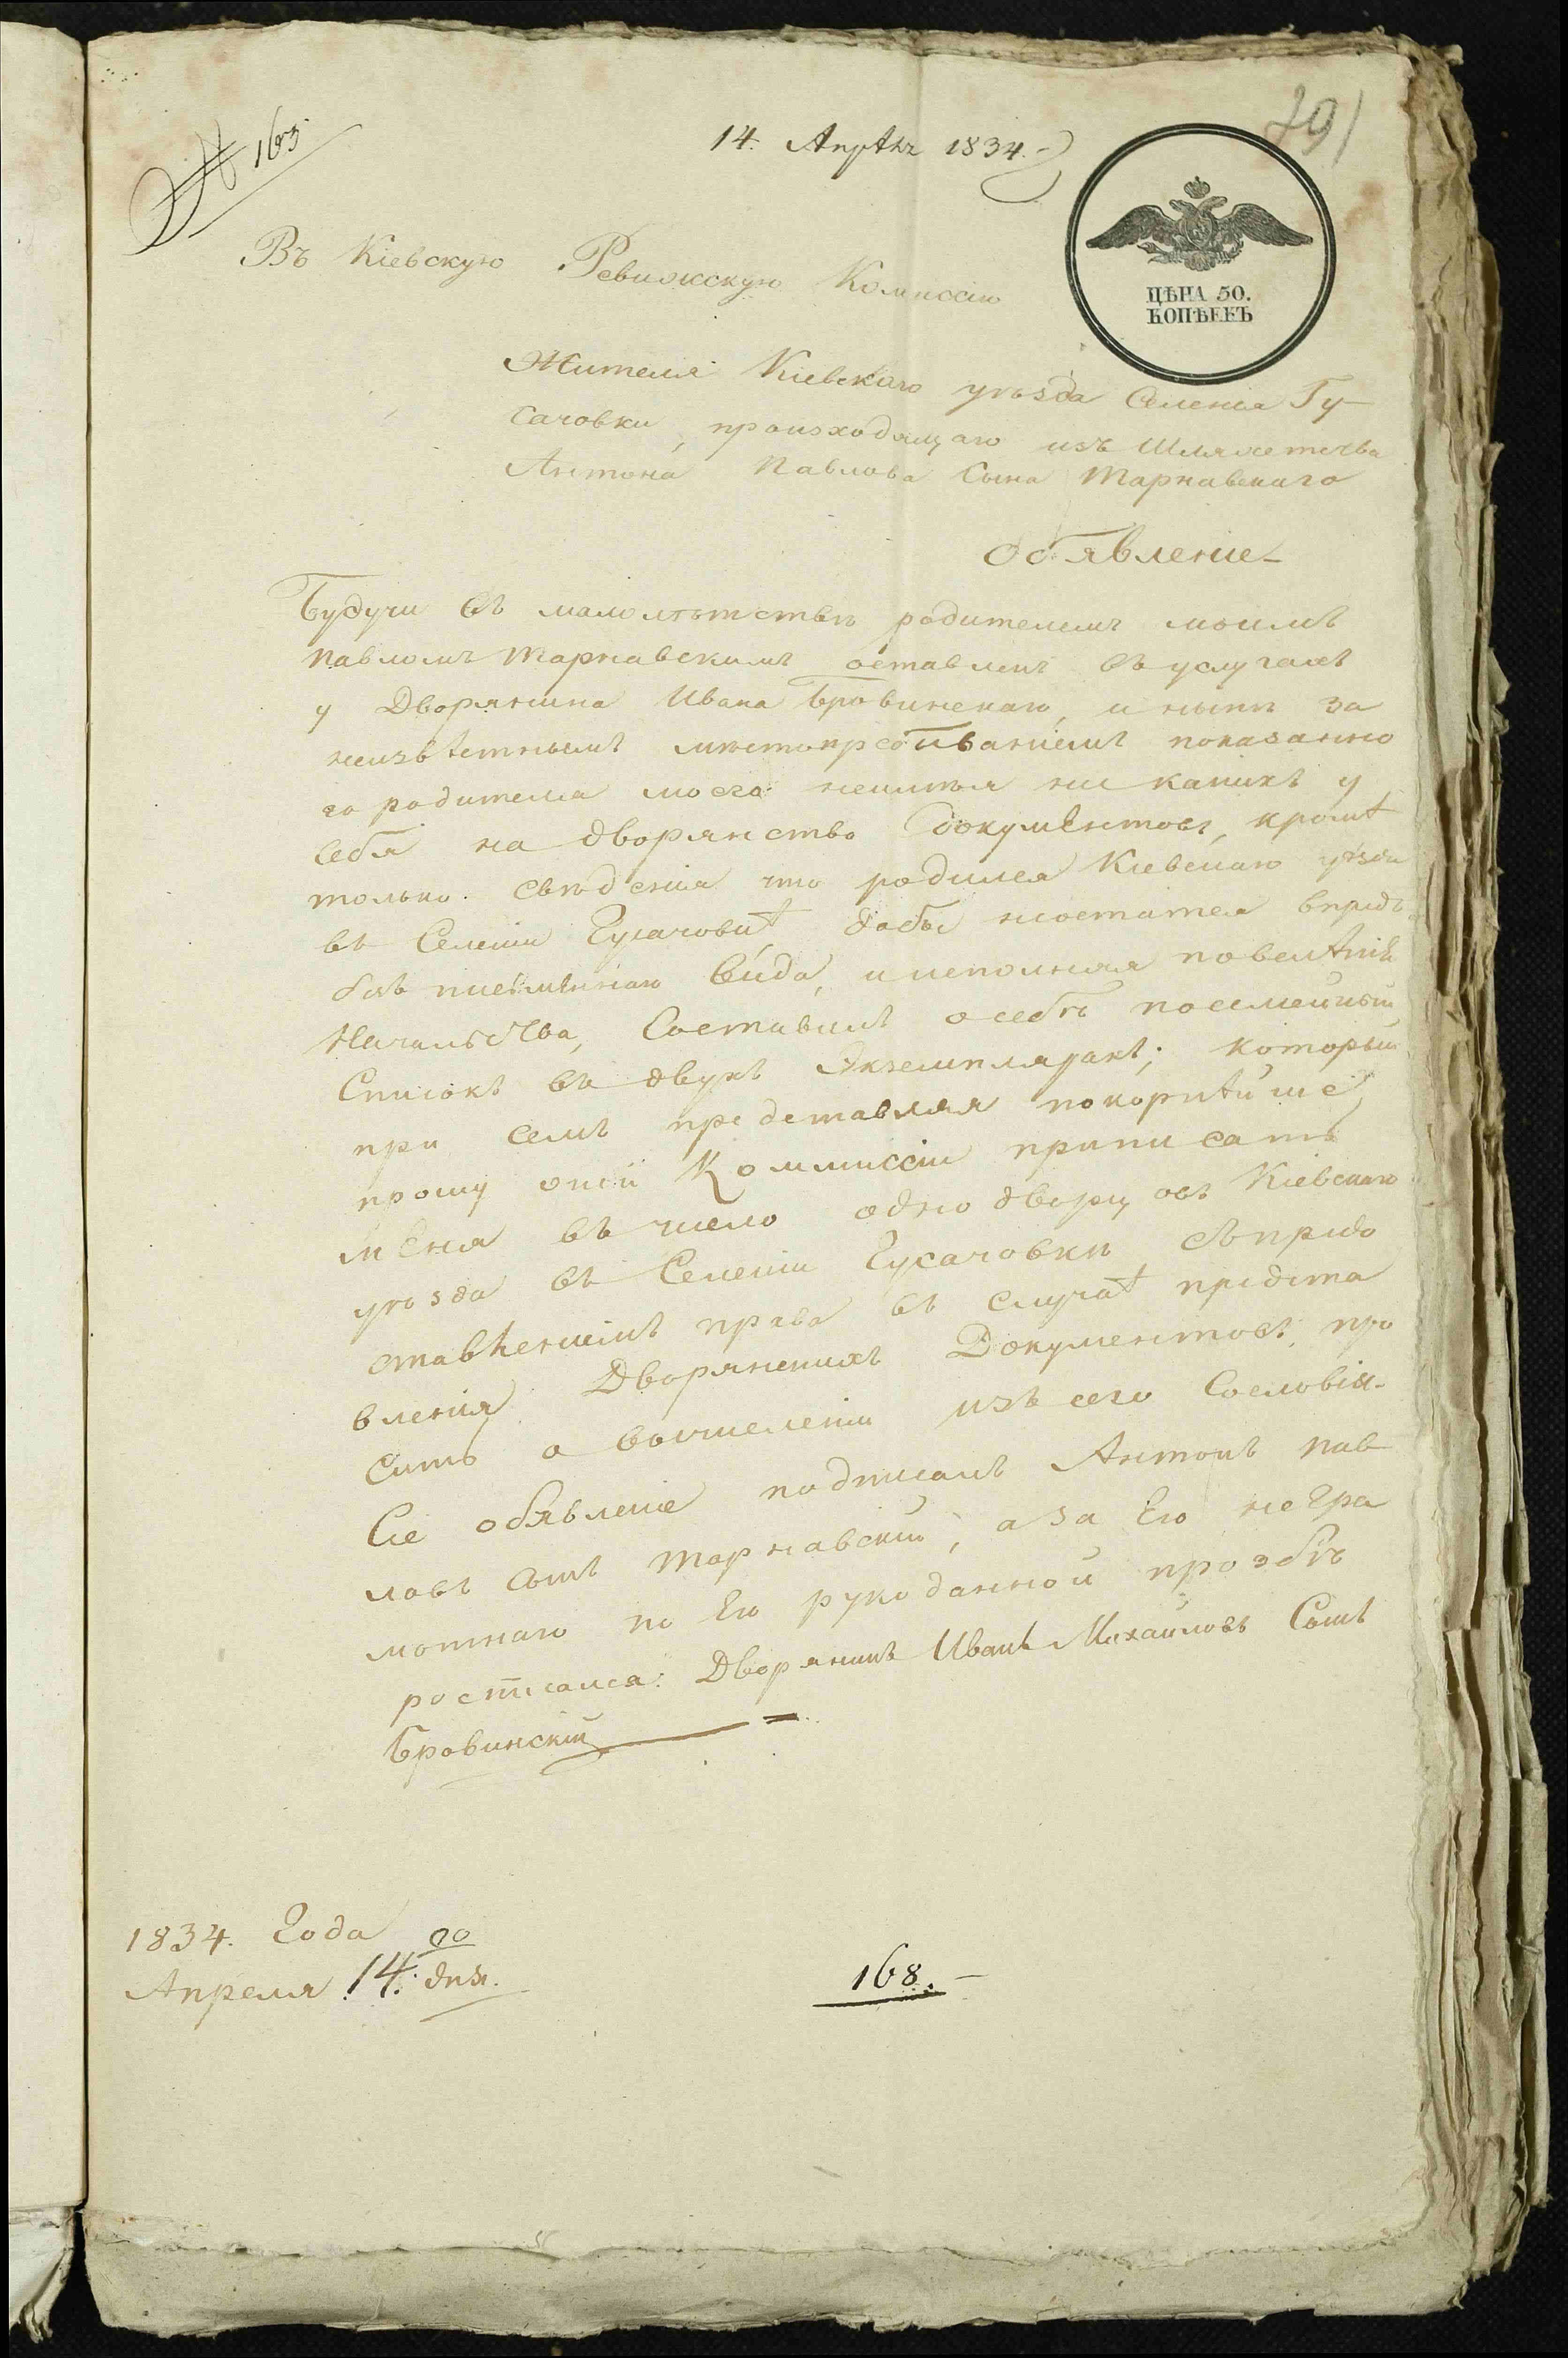 № 163
14. Апрѣль 1834.
291
Въ Кіевскую Ревижскую Комиссію
ЦѢНА 50.
КОПѢЕКЪ
Жителя Кіевскаго уѣзда Селенія Гу-
сачовки, происходящаго изъ Шляхетства
Антона Павлова Сына Тарнавскаго
Объявленіе
Будучи въ малолѣтствѣ родителемъ моимъ
Павломъ Тарнавскимъ оставленъ въ услугахъ
у Дворянина Ивана Бровинскаго, и нынѣ за
неизвѣстнымъ мѣстопребываніемъ показанно
го родителя моего неимѣя ни какихъ у
себя на дворянство документовъ, кромѣ
только свѣденія что родился Кіевскаго уѣзда
въ Селеніи Гусачовкѣ, дабы неостатся впредь
безъ писменнаго вида, и исполняя повелѣніе
Начальства, Составилъ о себѣ посемейный
Списокъ въ двухъ Экземплярахъ; который
при семъ представляя покорнѣйше
прошу оной Коммиссіи приписать
меня въ число однодворцовъ Кіевскаго
уѣзда въ Селеніи Гусачовки съ предо
ставленіемъ права въ случаѣ предста
вленія Дворянскихъ Документовъ, про
сить о вычисленіи изъ сего Сословія.
Сіе объявленіе подписалъ Антонъ Пав
ловъ Сынъ Тарнавскій, а за Его негра
мотнаго по Его рукоданной прозбѣ
росписался: Дворянинъ Иванъ Михайловъ Сынъ
Бровинскій
1834. Года
Апреля 14: го дня.
168.